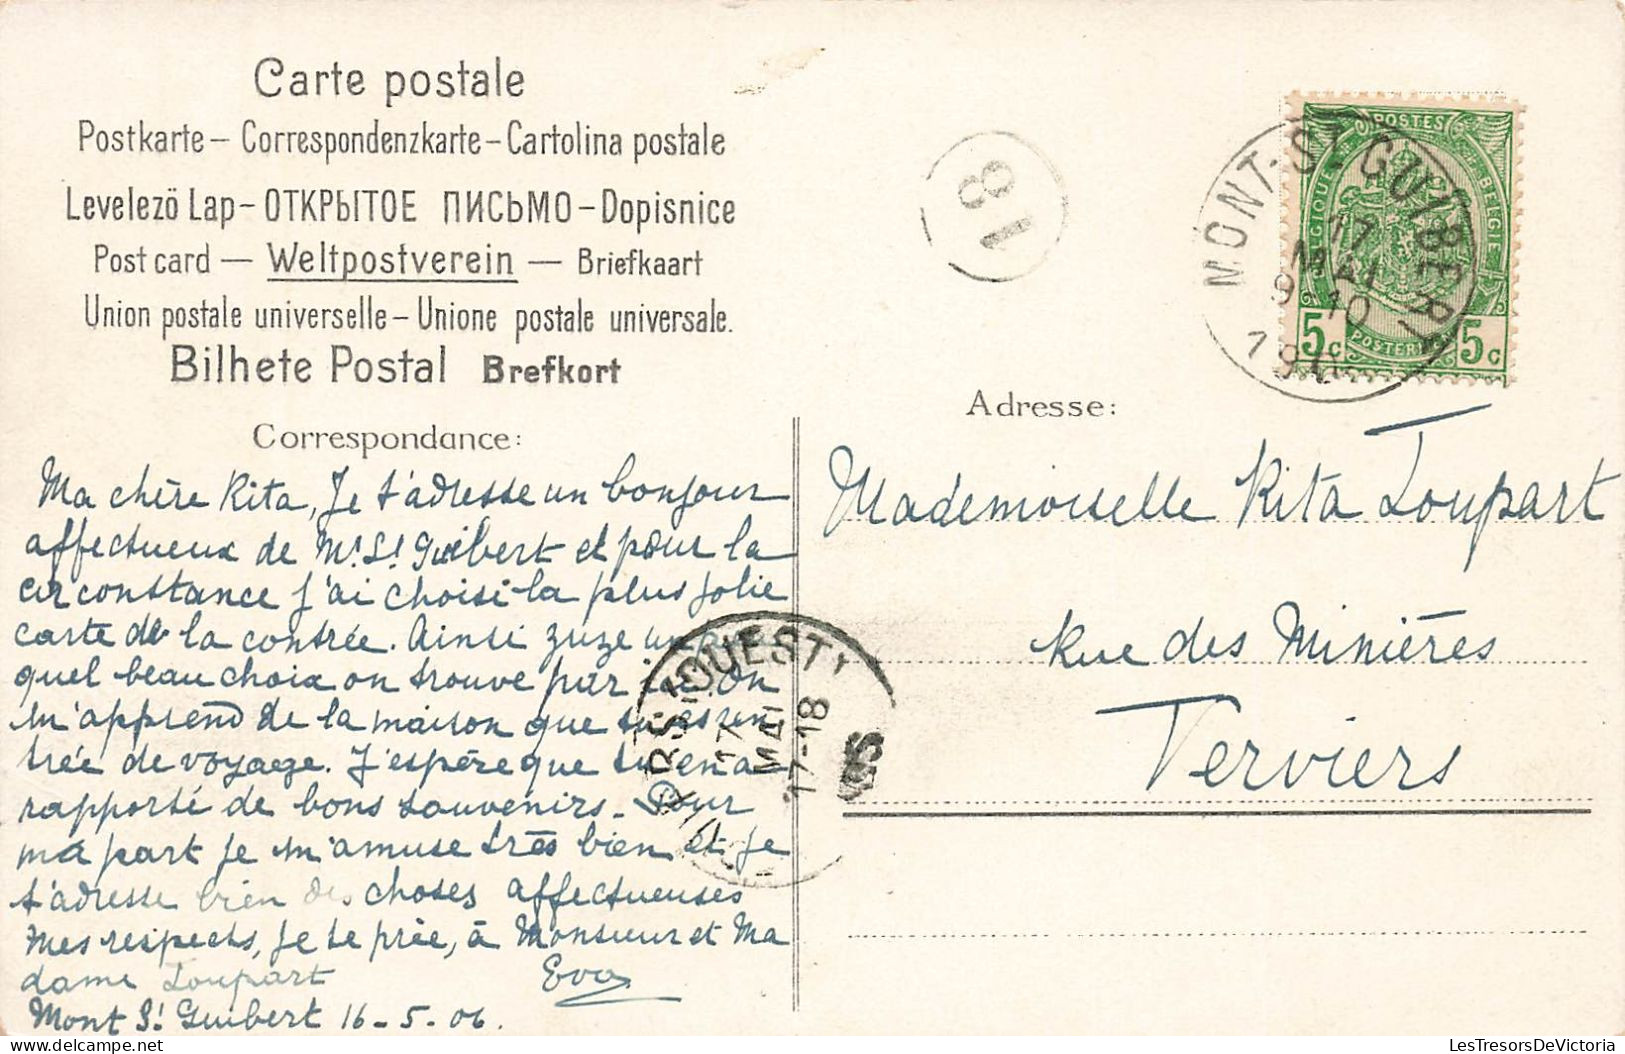 Carte postale
Postkarte – Correspondenzkarte – Cartolina postale
Levelező Lap – ОТКРЫТОЕ ПИСЬМО – Dopisnice
Post card — Weltpostverein — Briefkaart
Union postale universelle – Unione postale universale.
Bilhete Postal Brefkort
Correspondance:
Ma chère Rita, Je t'adresse un bonjour
affectueux de Mt St Guibert et pour la
circonstance j'ai choisi la plus jolie
carte de la contrée. Ainsi juze un peu
quel beau choix on trouve par ici. On
m'apprend de la maison que tu es ren
trée de voyage. J'espère que tu en a
rapporté de bons souvenirs. Pour
ma part je m'amuse très bien et je
t'adresse bien des choses affectueuses
Mes respects, je te prie, à Monsieur et Ma
dame Loupart Eva
Mont St Guibert 16-5-06.
81
POSTES
BELGIQUE BELGIE
POSTERIJEN
5c 5c
MONT-ST-GUIBERT
17
MAI
9 10
190
Adresse:
Mademoiselle Rita Loupart
Rue des Minières
Verviers
VERVIERS (OUEST)
17
MAI
17-18
LesTresorsDeVictoria